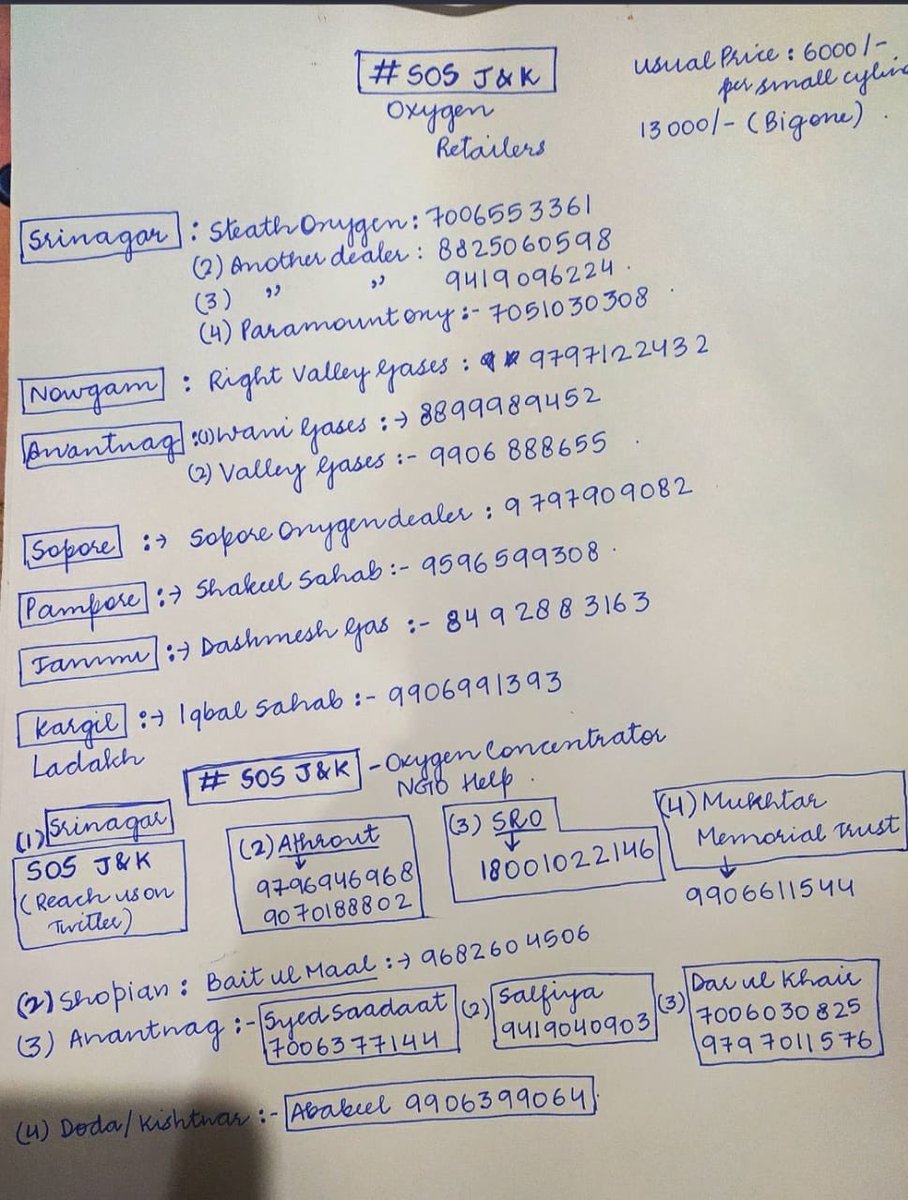 # SOS J&K
Oxygen
Retailers
usual Price : 6000/-
per small cylin
13000/- (Big one) .
Srinagar : Steath Oxygen : 7006553361
(2) Another dealer : 8825060598
(3) " " 9419096224 .
(4) Paramount oxy :- 7051030308
Nowgam : Right Valley Gases : 9797122432
Anantnag :(1) Wani Gases :→ 8899989452
(2) Valley Gases :- 9906888655 .
Sopore :→ Sopore Oxygen dealer : 9797909082
Pampore :→ Shakeel Sahab :- 9596599308 .
Jammu :→ Dashmesh Gas :- 8492883163
Kargil :→ Iqbal Sahab :- 9906991393
Ladakh
# SOS J&K - Oxygen Concentrator
NGO Help .
(1) Srinagar
SOS J&K
(Reach us on
Twitter)
(2) Athrout
↓
9796946968
9070188802
(3) SRO
↓
18001022146
(4) Mukhtar
Memorial Trust
↓
9906611544
(2) Shopian : Bait ul Maal :→ 9682604506
(3) Anantnag :- Syed Saadaat
7006377144
(2) Salfiya
9419040903
(3) Dar ul Khair
7006030825
9797011576
(4) Doda/Kishtwar :- Ababeel 9906399064